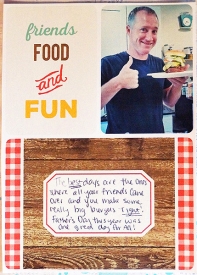 friends
FOOD
and
FUN
The best days are the ones
where all your friends come
over and you make some
really big burgers. Right?
Father's Day this year was
one great day for All!